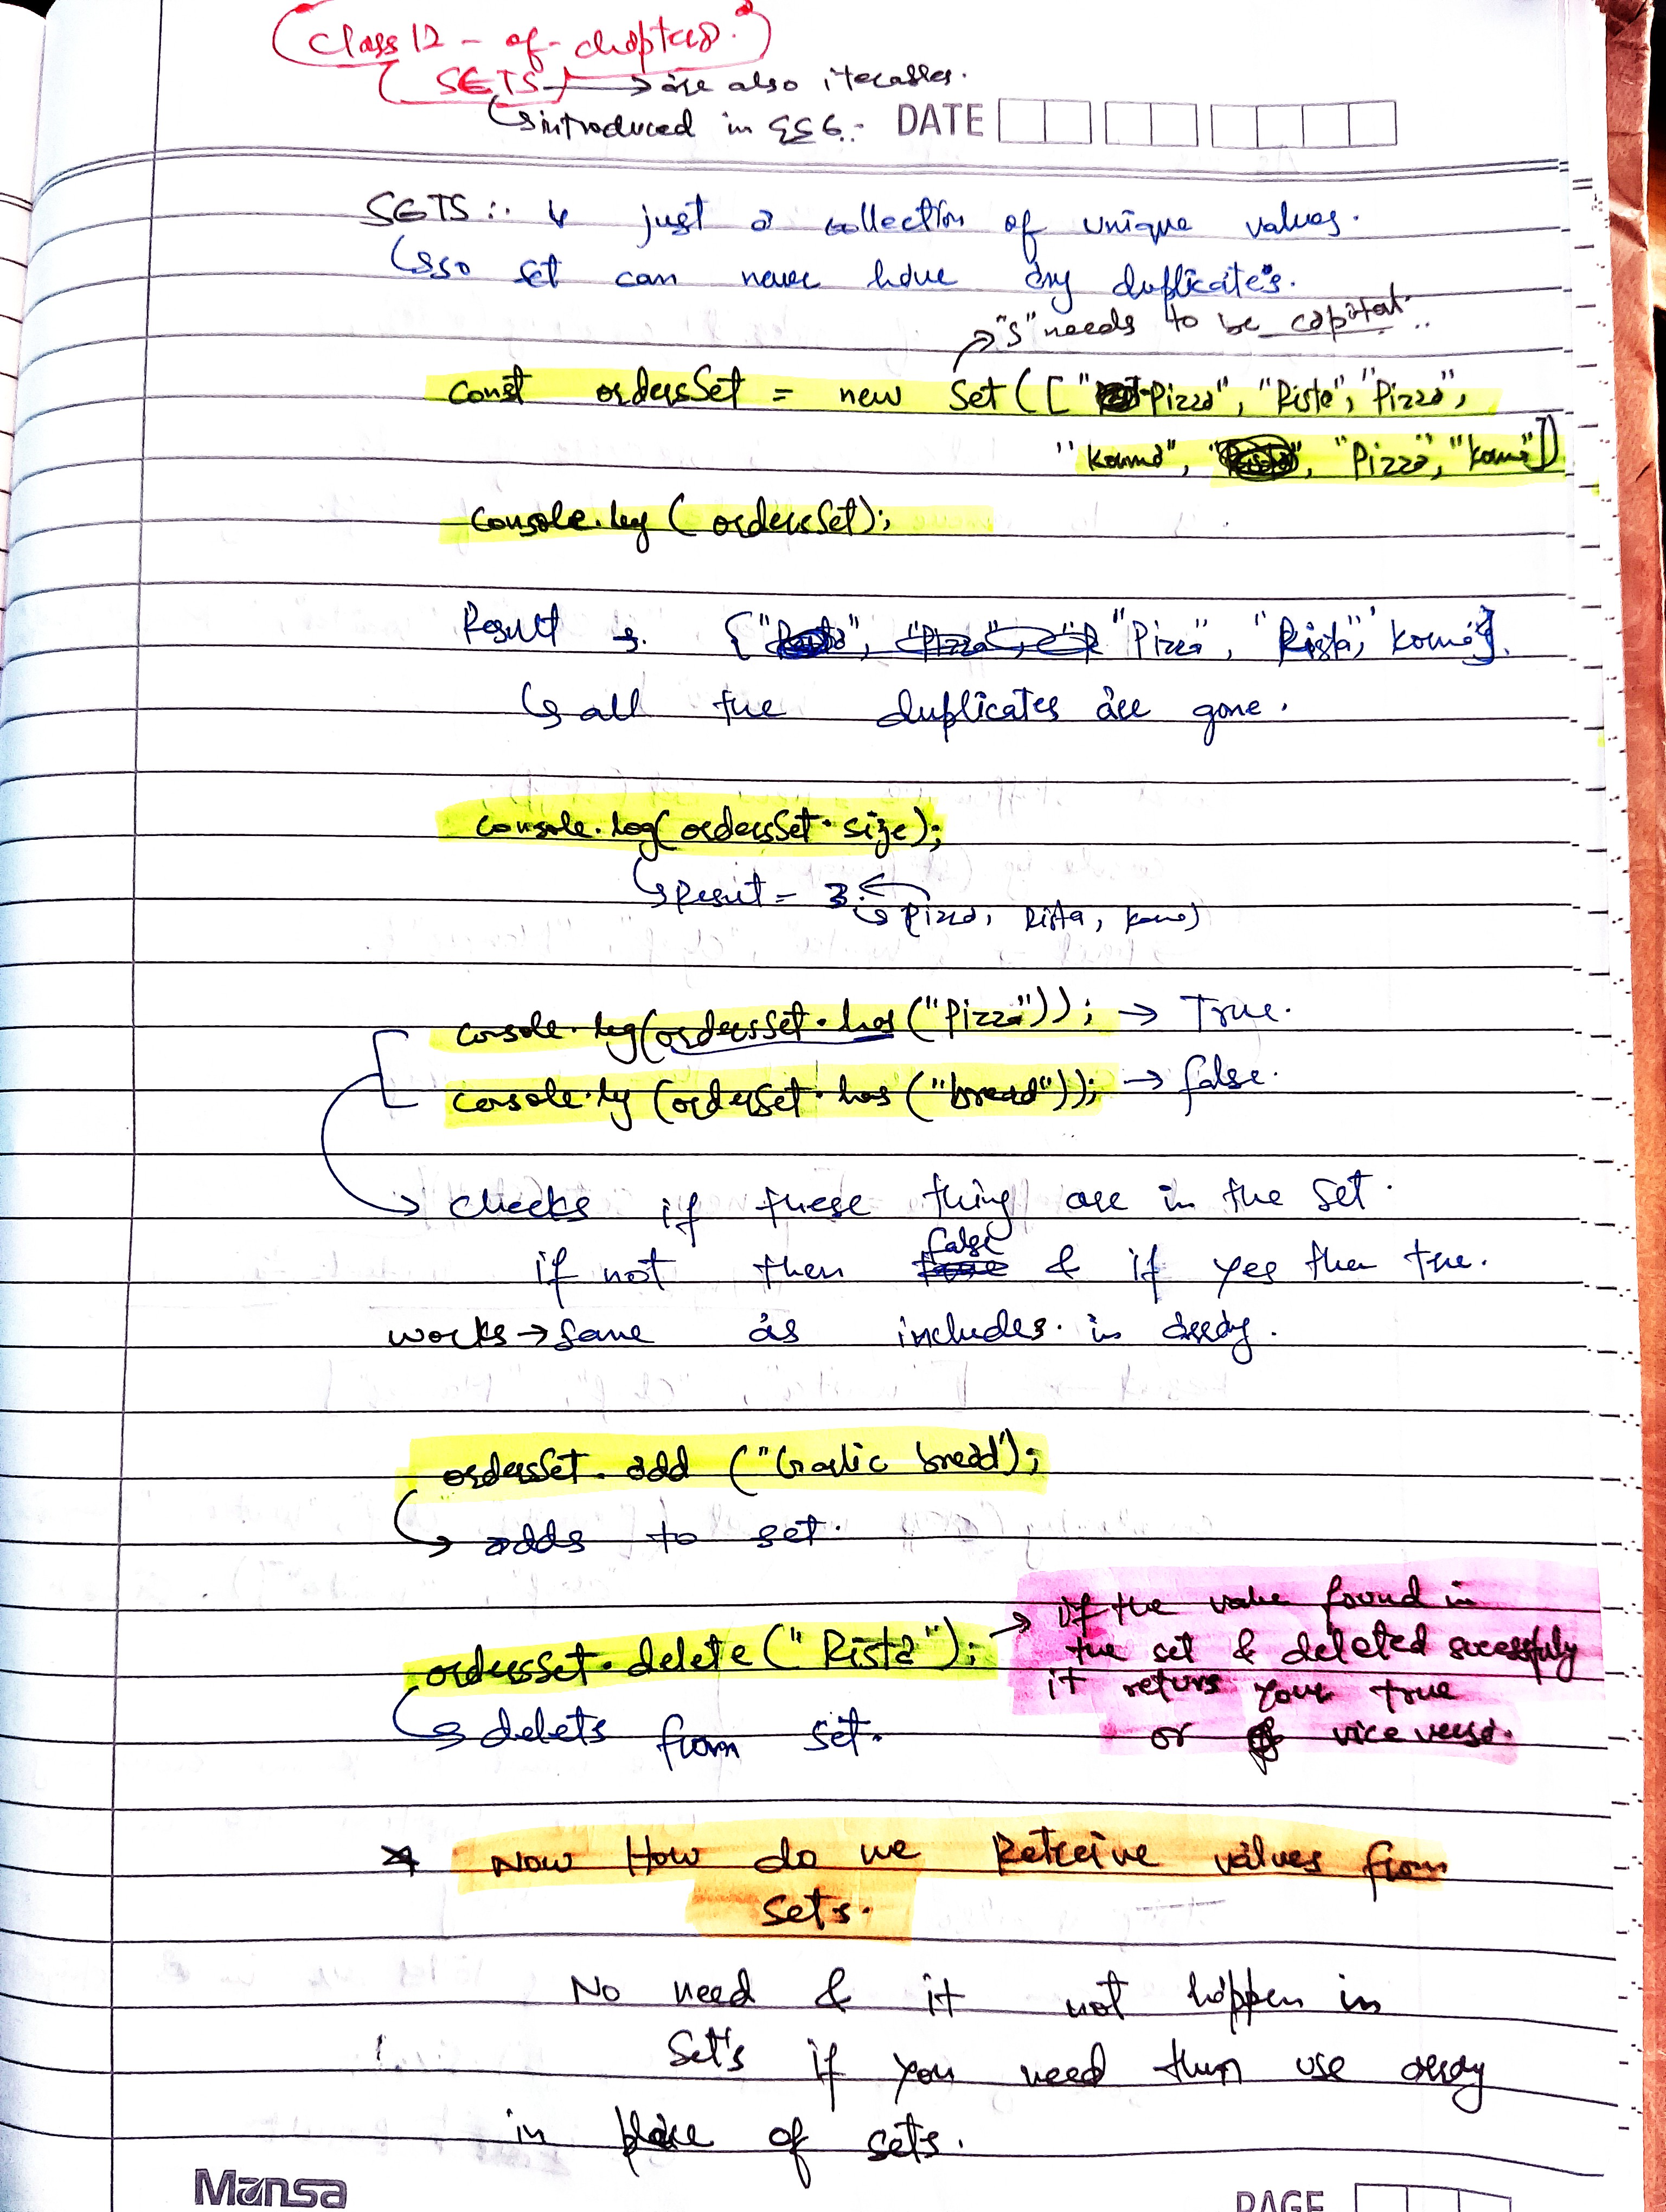 Class 12 - of - chapter 8.
SETS → are also iterables.
↳ introduced in ES6.
DATE
SETS :. ↳ just a collection of unique values.
↳ so set can never have any duplicate's.
→ "S" needs to be capital..
const ordersSet = new Set(["Pizza", "Rista", "Pizza",
"Korma", "Pizza", "korma"])
console.log (ordersSet);
Result → {"Pizza", "Rista", "korma"}.
↳ all the duplicates are gone.
console.log(ordersSet.size);
↳ Result = 3.
↳ pizza, Rista, korma
console.log(ordersSet.has("Pizza")); → True.
console.log (orderSet.has ("bread")); → false.
→ checks if these thing are in the set.
if not then false & if yes then true.
works → same as includes. in array.
ordersSet.add ("Garlic bread");
↳ adds to set.
ordersSet.delete("Rista"); → if the value found in
the set & deleted sucessfuly
it returs your true
or vice versa.
↳ delets from set.
* Now How do we Retreive values from
sets.
No need & it not happen in
Set's if you need then use array
in place of sets.
Mansa
PAGE